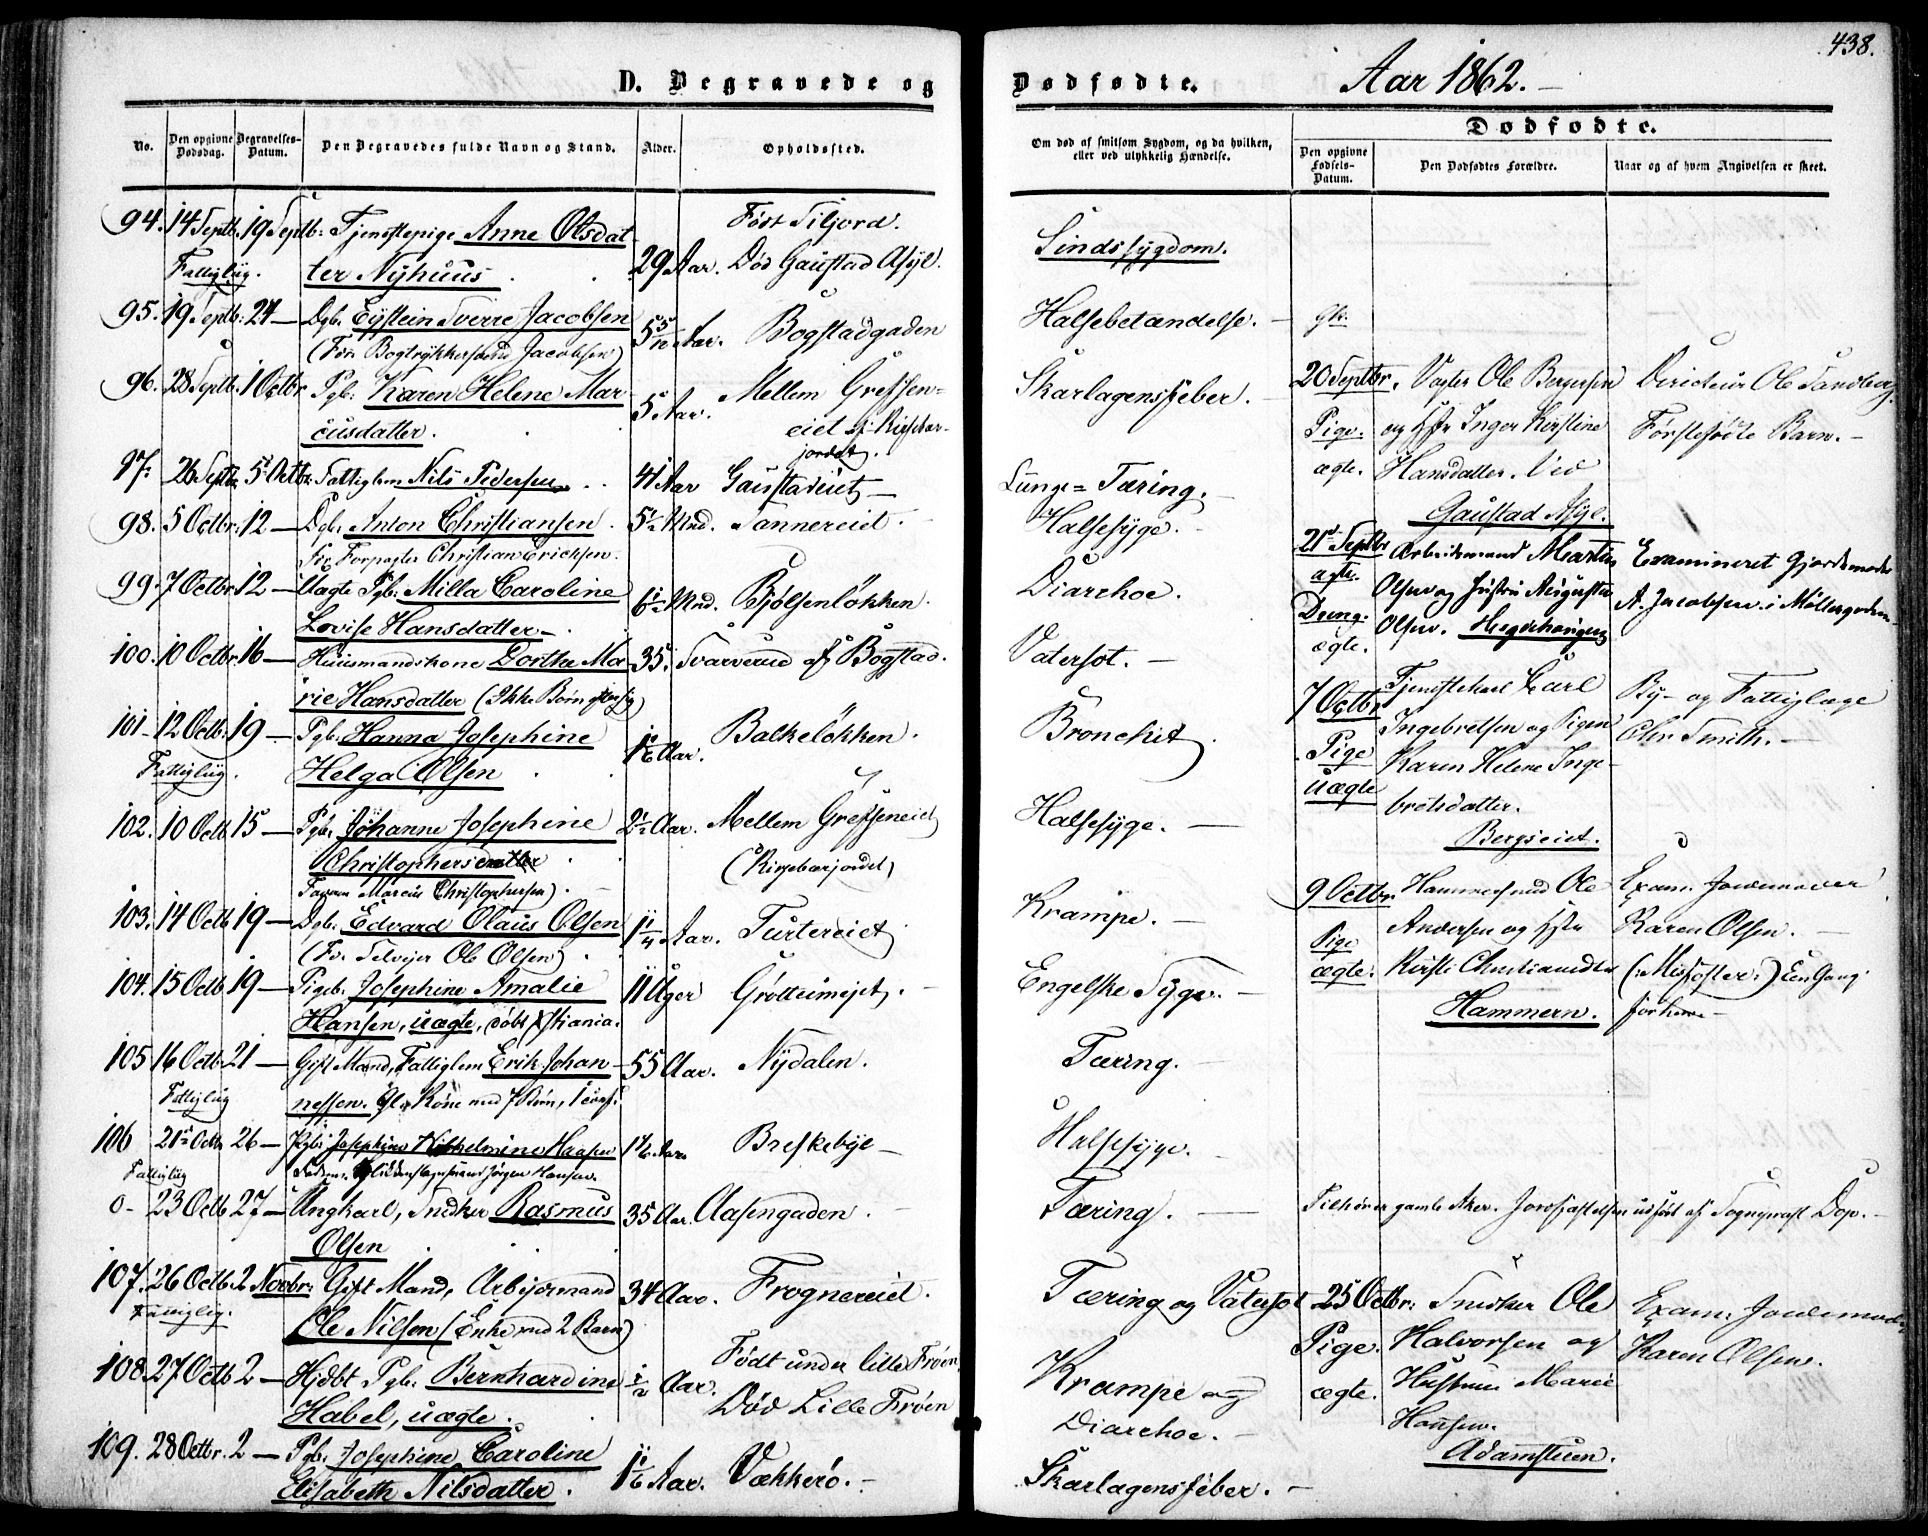 438.
D. Begravede og Dødfødte. Aar 1862.
No.
Den opgivne Dødsdag.
Begravelses-Datum.
Den Begravedes fulde Navn og Stand.
Alder.
Opholdssted.
Om død af smitsom Sygdom, og da hvilken, eller ved ulykkelig Hændelse.
Dødfødte.
Den opgivne Fødsels-Datum.
Den Dødfødtes Forældre.
Naar og af hvem Angivelsen er skeet.
94. 14 Septb. 19 Septb: Tjenstepige Anne Olsdat- Født Siljord. Sindssygdom.
Fattiglig. ter Nyhuus 29 Aar. Død Gaustad Asyl.
95. 19 Septb: 24 — Dgb. Eystein Sverre Jacobsen 5 5/12 Aar. Bogstadgaden Halsebetændelse.
(Far Bogtrykkersvend Jacobsen)
96. 28 Septb. 1 Octbr Pgb. Karen Helene Mar- 5 Aar. Mellem Grefsen- Skarlagensfeber.
cusdatter. eiet
97. 26 Septb. 5 Octbr. Fattiglem Nils Pedersen 41 Aar Gaustadeiet — Lunge=Tæring.
98. 5 Octbr. 12 — Dgb. Anton Christiansen 5 1/2 Mnd. Sannereiet. Halsesyge.
For Forpagter Christian Ericksen.
99. 7 Octbr 12 — Uægte Pgb. Milla Caroline 6 1/2 Mnd. Bjølsenløkken. Diarrhoe.
Lovise Hansdatter
100. 10 Octbr. 16 — Huusmandskone Dorthe Ma- 35. Svarverud af Bogstad. Vatersot. —
rie Hansdatter (Ikke Børn
101 12 Octb. 19 — Pgb. Hanna Josephine 1 1/6 Aar. Balkeløkken. Bronchit.
Fattiglig. Helga Olsen
102. 10 Octb 15 — Pgb. Johanne Josephine 2 1/2 Aar. Mellem Grefseneiet Halsesyge. —
Christophersdatter (Kirsebærjordet)
Faderen Marcus Christophersen)
103. 14 Octb 19 — Dgb. Edvard Olaus Olsen 1 1/4 Aar. Turtereiet Krampe. —
(Fv. Selveier Ole Olsen)
104. 15 Octb 19 — Pigeb. Josephine Amalie 11 Uger Grøttumejet. Engelske Syge. —
Hansen, uægte, døbt Xtiania.
105 16 Octb 21 — Gift Mand, Fattiglem Erik Johan- 55 Aar. Nydalen. Tæring.
Fattiglig nessen. Kone med 7 Børn,
106 21 Octb 26 — Pgb. Josephine Wilhelmine Hansen 1 1/6 Aar. Breskebye — Halsesyge.
Fattiglig Jørgen Hansen.
0 — 23 Octb 27 — Ungkarl, Snedker Rasmus 35 Aar. Aasengaden. Tæring. —
Olsen
Tilhører gamle Aker. Jordfæstelsen udført af Sognepræst Dop. —
107. 26 Octb. 2 Novbr: Gift Mand, Arbejdsmand 34 Aar. Frognereiet. Tæring og Vatersot
Fattiglig. Ole Nilsen (Enke med 2 Barn)
108. 27 Octb 2 — Hjdbt Pgb. Bernhardine 1/2 Aar. Født under lille Frøen. Krampe og
Habel, uægte. Død Lille Frøen Diarrhoe. —
109. 28 Octbr. 2 — Pgb. Josephine Caroline 1 1/6 Aar. Vækkerø. — Skarlagensfeber. —
Elisabeth Nilsdatter.
20 Septbr. Vogter Ole Bergersen Directeur Ole Sandberg.
Pige. og Hstr Inger Kirstine Førstefødte Barn. —
ægte. Hansdatter. Ved
Gaustad Asyl.
21 Septbr Arbeidsmand Martin Examineret Gjordemoder
Olsen og Hustru Augusta A. Jacobsen i Møllergaden
Dreng. Olsen. Hegdehaugen
ægte.
7 Octbr Tjenstekarl Carl By- og Fattiglæge
Ingebretsen og Pigen Chr Smith. —
Pige Karen Helene Inge-
uægte bretsdatter.
Bergseiet.
9 Octbr. Hammersmed Ole Exam. Jordemoder
Pige Andersen og Hstr Karen Olsen. —
ægte. Kirsti Christiansdtr (Misfoster:) En Gang
Hammern. forhen —
25 Octbr: Snedker Ole Exam: Jordemoder
Pige. Halvorsen og Karen Olsen.
ægte. Hustru Marie
Hansen.
Adamstuen.